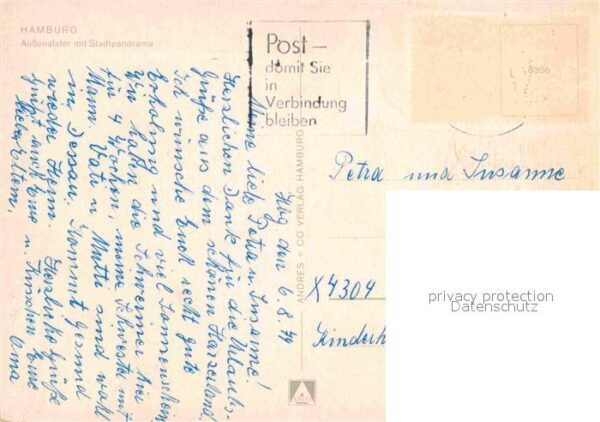 HAMBURG
Außenalster mit Stadtpanorama
Post –
damit Sie
in
Verbindung
bleiben
Hbg den 6.8.74
Meine liebe Petra u. Susanne!
Herzlichen Dank für die Urlaubs-
Grüße aus dem schönen Harzerland.
Ich wünsche Euch recht gute
Erholung und viel Sonnenschein
Wir haben die Schweriner hier
für 4 Wochen, meine Schwester mit
Mann. Vati u Mutti sind wohl
in Dessau. Kommt gesund
wieder Heim. Herzliche Grüße
u. Küsschen Eure
Oma
ANDRES + CO VERLAG HAMBURG
Petra und Susanne
X4304
Kinderh
privacy protection
Datenschutz